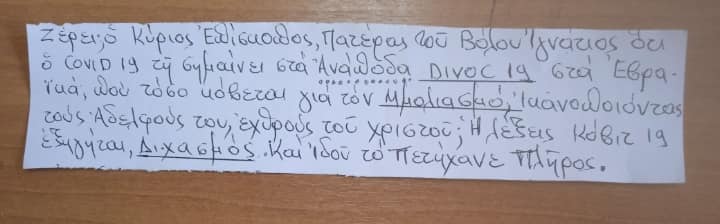 Ξέρει; ὁ Κύριος Ἐπίσκοπος, Πατέρας τοῦ Βόλου Ἰγνάτιος ὅτι
ὁ COVID 19 τῆ σημαίνει στὰ Ἀνάποδα DIVOC 19 στὰ Ἑβρα-
ϊκά, ποὺ τόσο κόβεται γιὰ τὸν Μμολιασμό, Ἱκανοποιόντας
τοὺς Ἀδελφούς του, ἐχθροὺς τοῦ χριστοῦ; Ἡ λέξεις Κόβιτ 19
ἐξηγῆται, Διχασμὸς. Καὶ Ἰδοῦ τὸ Πετύχανε Πλῆρος.